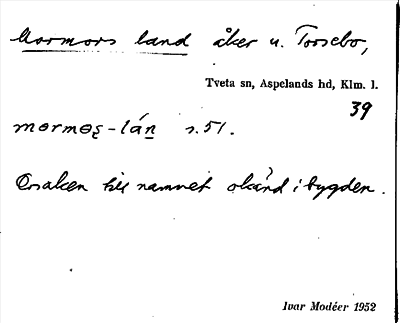 Mormors land åker u. Torsebo,
Tveta sn, Aspelands hd, Klm. l.
39
mormos-lán s. 51.
Orsaken till namnet okänd i bygden.
Ivar Modéer 1952